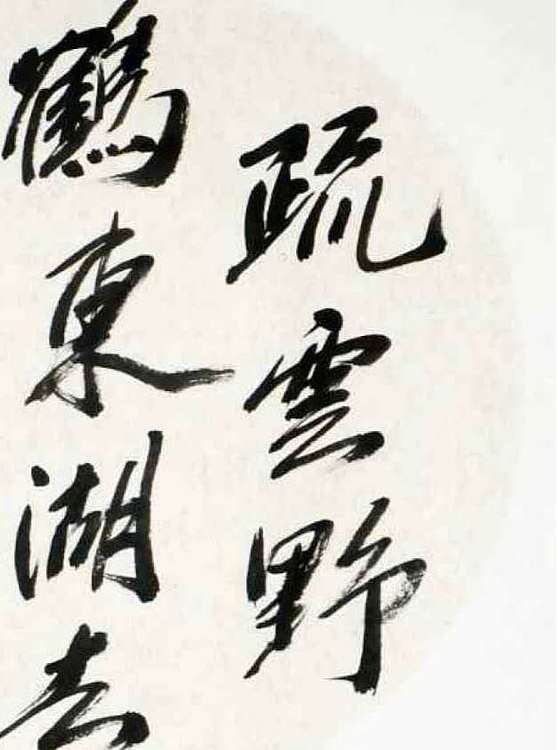 疏雲野
鶴東湖去